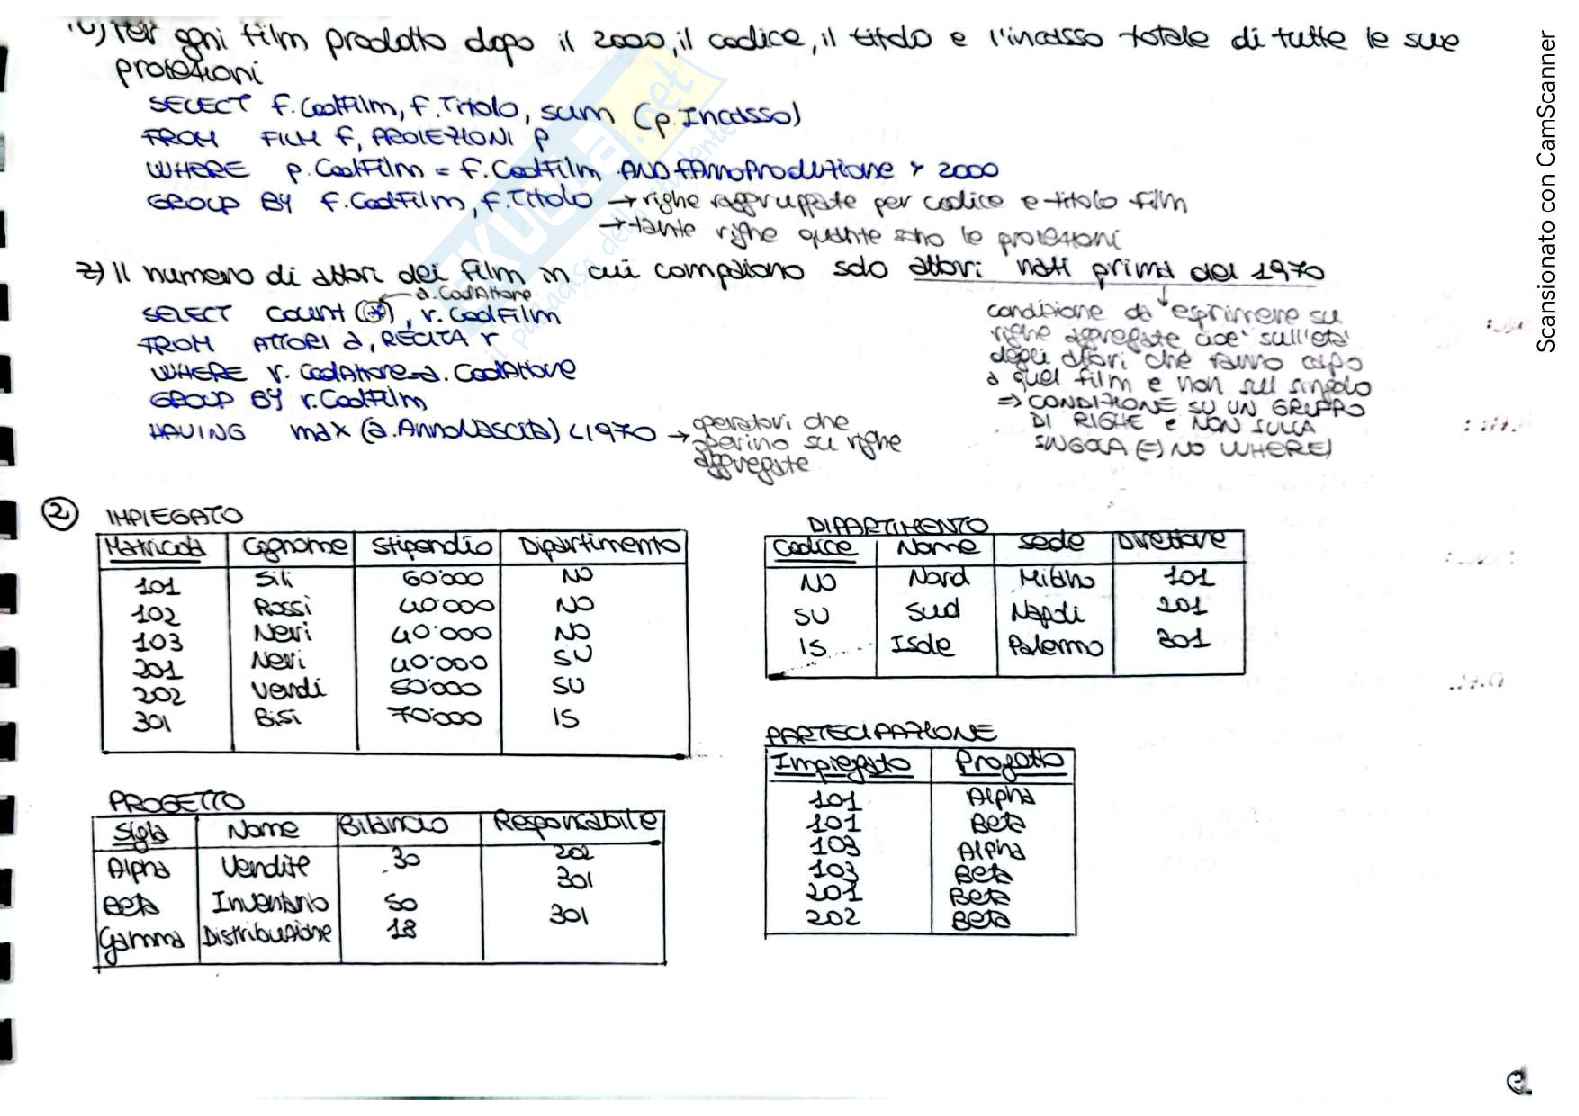 Per ogni film prodotto dopo il 2000, il codice, il titolo e l'incasso totale di tutte le sue
proiezioni
SELECT f.CodFilm, f.Titolo, sum (p.Incasso)
FROM FILM f, PROIEZIONI p
WHERE p.CodFilm = f.CodFilm AND f.AnnoProduzione > 2000
GROUP BY f.CodFilm, f.Titolo → righe raggruppate per codice e titolo film
→ tante righe quante sono le proiezioni
z) Il numero di attori dei film in cui compaiono solo attori nati prima del 1970
a.CodAttore
SELECT count (*), r.CodFilm
FROM ATTORI a, RECITA r
WHERE r.CodAttore = a.CodAttore
GROUP BY r.CodFilm
HAVING max (a.AnnoNascita) < 1970 → operatori che
operino su righe
aggregate
condizione da esprimere su
righe aggregate cioè sull'età
degli attori che fanno capo
a quel film e non sul singolo
⇒ CONDIZIONE SU UN GRUPPO
DI RIGHE e NON SULLA
SINGOLA (⇒ NO WHERE)
② IMPIEGATO
Matricola Cognome Stipendio Dipartimento
101 Sili 60'000 NO
102 Rossi 40'000 NO
103 Neri 40'000 NO
201 Neri 40'000 SU
202 Verdi 50'000 SU
301 Bisi 70'000 IS
DIPARTIMENTO
Codice Nome Sede Direttore
NO Nord Milano 101
SU Sud Napoli 201
IS Isole Palermo 301
PROGETTO
Sigla Nome Bilancio Responsabile
Alpha Vendite 30 202
Beta Inventario 50 301
Gamma Distribuzione 18 301
PARTECIPAZIONE
Impiegato Progetto
101 Alpha
101 Beta
103 Alpha
103 Beta
201 Beta
202 Beta
Scansionato con CamScanner